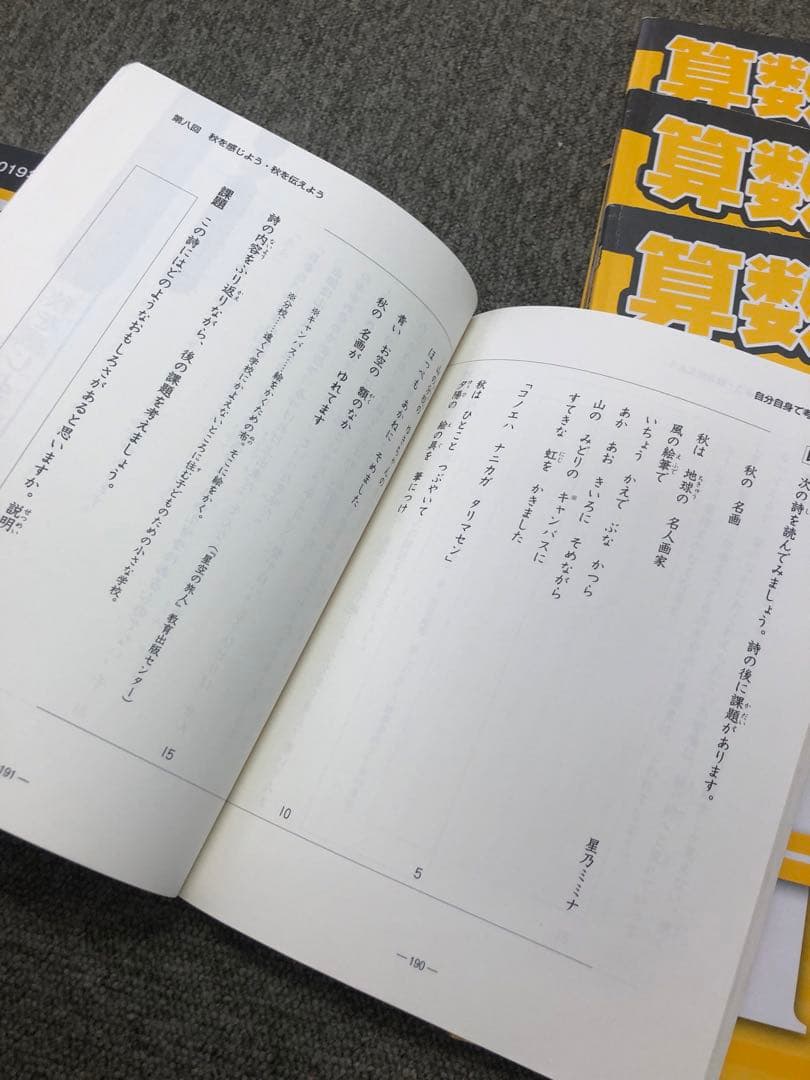 算数
算数
算数
019
自分自身で
次の詩を読んでみましょう。詩の後に課題があります。
秋の 名画
星乃ミミナ
秋は 地球の 名人画家
風の絵筆で
いちょう かえで ぶな かつら
あか あお きいろに そめながら
山の みどりの ※キャンバスに
すてきな 虹を かきました
「コノエハ ナニカガ タリマセン」
秋は ひとこと つぶやいて
夕陽の 絵の具を 筆につけ
5
10
—190—
ほっぺも あかねに そめました
青い お空の 額のなか
秋の 名画が ゆれてます
※キャンバス……絵をかくための布。そこに絵をかく。
※分校……遠くて学校にかよえないところに住む子どものための小さな学校。
(「星空の旅人」教育出版センター)
15
詩の内容をふり返りながら、後の課題を考えましょう。
課題 この詩にはどのようなおもしろさがあると思いますか。説明
第八回 秋を感じよう・秋を伝えよう
191—